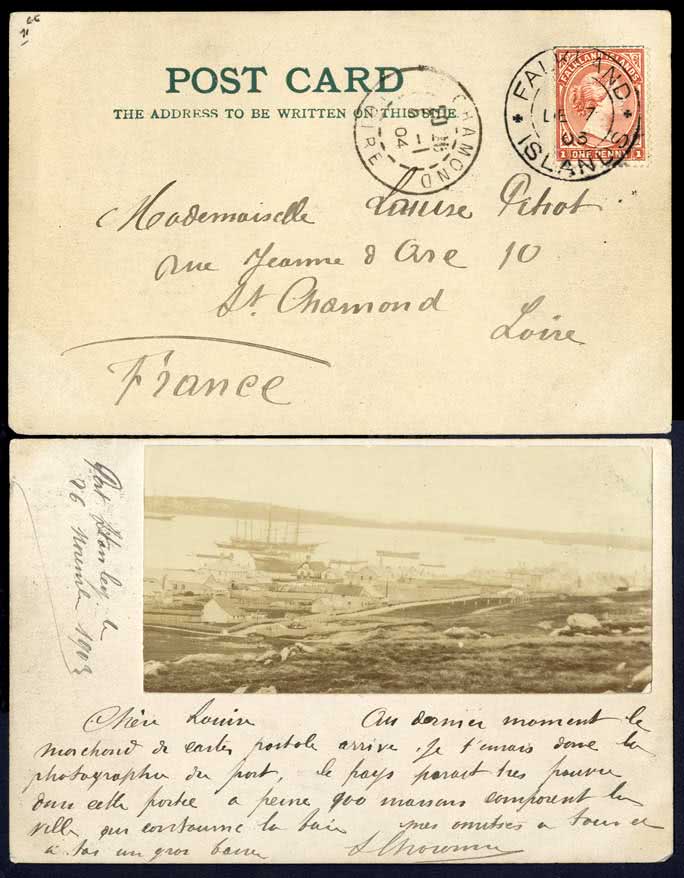 POST CARD
THE ADDRESS TO BE WRITTEN ON THIS SIDE.
CHAMOND
LOIRE
04
FALKLAND ISLANDS
DE 7
03
FALKLAND ISLANDS
1 ONE PENNY 1
Mademoiselle Louise
Rue Jeanne d Arc 10
St. Chamond
Loire
France
Port Stanley le
26 Novembre 1903
Chère Louise Au dernier moment le
marchand de cartes postale arrive. Je t'envois donc la
photographie du port, le pays parait tres pauvre
dans cette a peine 900 maisons composent la
ville qui contourne la baie mes amities a tous et
a toi un gros baiser